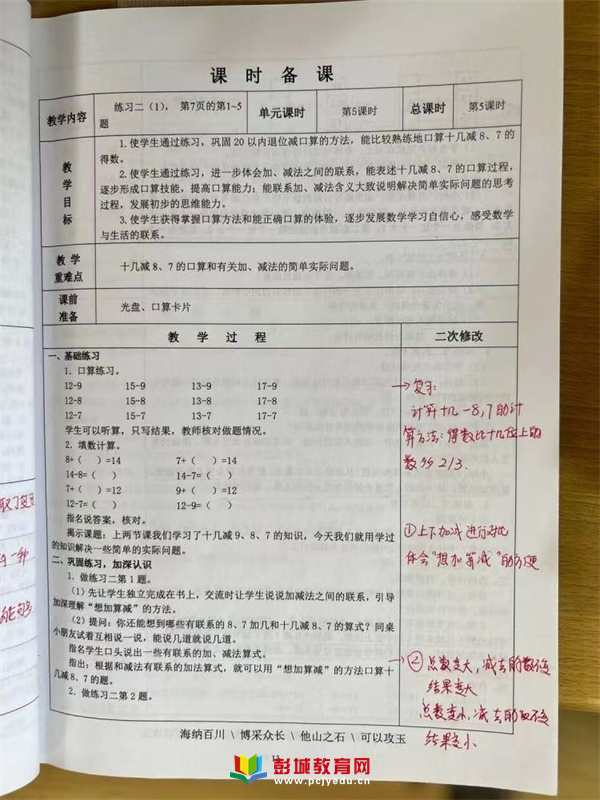 课 时 备 课
教学内容
练习二（1）， 第7页的第1~5
题
单元课时
第5课时
总课时
第5课时
教
学
目
标
1.使学生通过练习，巩固20以内退位减口算的方法，能比较熟练地口算十几减8、7的
得数。
2.使学生通过练习，进一步体会加、减法之间的联系，能表述十几减8、7的口算过程，
逐步形成口算技能，提高口算能力；能联系加、减法含义大致说明解决简单实际问题的思考
过程，发展初步的思维能力。
3.使学生获得掌握口算方法和能正确口算的体验，逐步发展数学学习自信心，感受数学
与生活的联系。
教 学
重难点
十几减8、7的口算和有关加、减法的简单实际问题。
课前
准备
光盘、口算卡片
教 学 过 程
二次修改
一、基础练习
1. 口算练习。
12-9 15-9 13-9 17-9
12-8 15-8 13-8 17-8
12-7 15-7 13-7 17-7
学生可以听算，只写结果，教师核对做题情况。
2. 填数计算。
8+（ ）=14 7+（ ）=14
14-8=（ ） 14-7=（ ）
7+（ ）=12 9+（ ）=12
12-7=（ ） 12-9=（ ）
指名说答案，核对。
揭示课题：上两节课我们学习了十几减9、8、7的知识，今天我们就用学过
的知识解决一些简单的实际问题。
二、巩固练习，加深认识
1. 做练习二第1题。
（1）先让学生独立完成在书上，交流时让学生说说加减法之间的联系，引导
加深理解“想加算减”的方法。
（2）提问：你还能想到哪些有联系的8、7加几和十几减8、7的算式？同桌
小朋友试着互相说一说，能说几道就说几道。
指名学生口头说出一些有联系的加、减法算式。
指出：根据和减法有联系的加法算式，就可以用“想加算减”的方法口算十
几减8、7的题。
2. 做练习二第2题。
→复习：
计算十几-8,7的计
算方法：得数比十几位上的
数多2/3.
①上下加减进行对比
体会“想加算减”的方便
→②总数变大，减去的数不变
结果变大
总数变小，减去的数不变
结果变小
海纳百川 \ 博采众长 \ 他山之石 \ 可以攻玉
彭城教育网
www.pcjyedu.cn